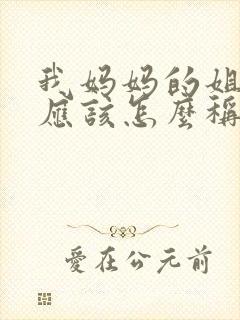 我妈妈的姐
應該怎麼稱
愛在公元前